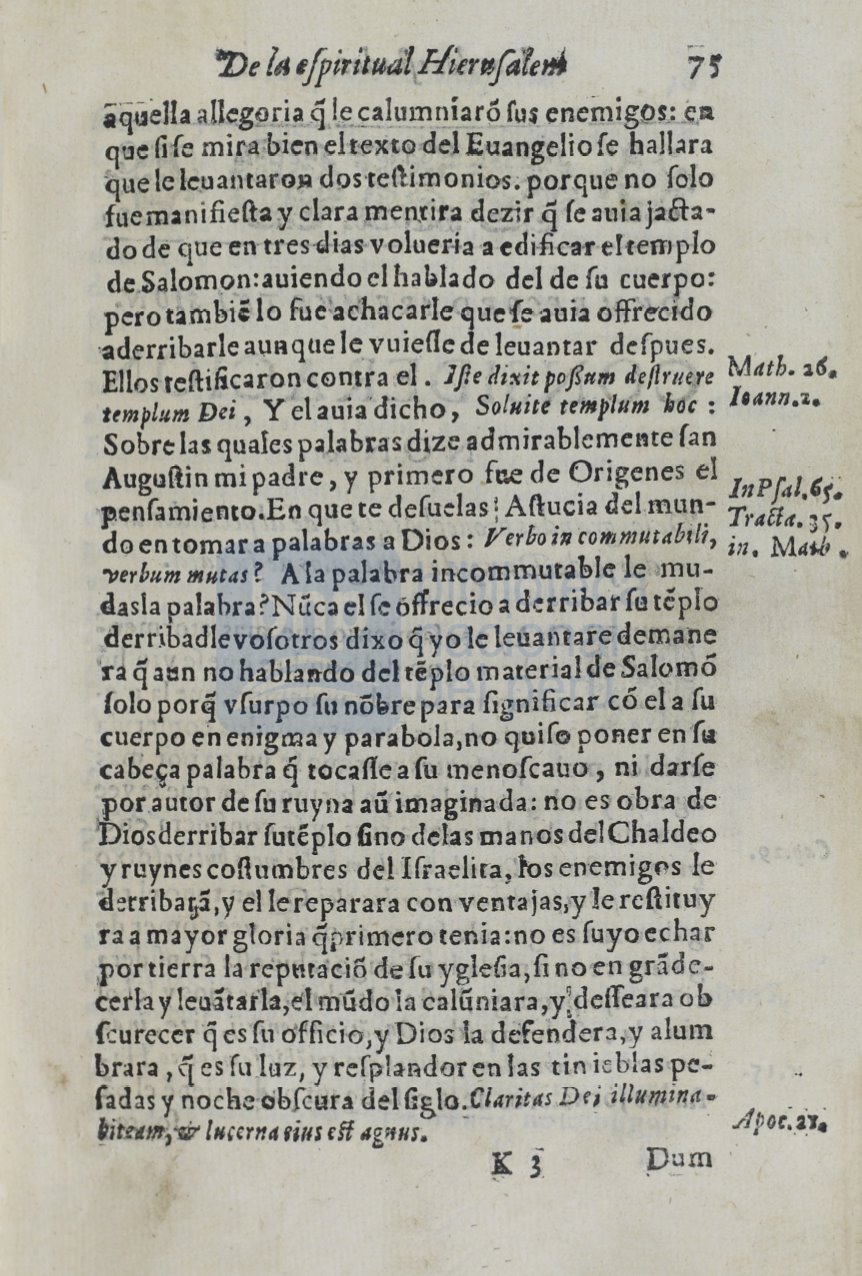 De la eſpiritual Hieruſalem 75
aquella allegoria q̃ le calumniarõ ſus enemigos: en
que ſi ſe mira bien el texto del Euangelio ſe hallara
que le leuantaron dos teſtimonios. porque no ſolo
fue manifieſta y clara mentira dezir q̃ ſe auia jacta-
do de que en tres dias volueria a edificar el templo
de Salomon: auiendo el hablado del de ſu cuerpo:
pero tambiẽ lo fue achacarle que ſe auia offrecido
aderribarle aunque le vuieſſe de leuantar deſpues.
Ellos teſtificaron contra el. Iſte dixit poßum deſtruere
templum Dei, Y el auia dicho, Soluite templum hoc :
Math. 26.
Ioann.2.
Sobre las quales palabras dize admirablemente ſan
Auguſtin mi padre, y primero fue de Origenes el
penſamiento. En que te deſuelas? Aſtucia del mun-
do en tomar a palabras a Dios: Verbo incommutabili,
InPſal.65.
Tracta. 35.
in. Math.
verbum mutas? A la palabra incommutable le mu-
das la palabra? Nũca el ſe offrecio a derribar ſu tẽplo
derribadle voſotros dixo q̃ yo le leuantare de mane
ra q̃ aun no hablando del tẽplo material de Salomõ
ſolo porq̃ vſurpo ſu nõbre para ſignificar cõ el a ſu
cuerpo en enigma y parabola, no quiſo poner en ſu
cabeça palabra q̃ tocaſſe a ſu menoſcauo, ni darſe
por autor de ſu ruyna aũ imaginada: no es obra de
Dios derribar ſu tẽplo ſino de las manos del Chaldeo
y ruynes coſtumbres del Iſraelita, los enemigos le
derribarã, y el le reparara con ventajas, y le reſtituy
ra a mayor gloria q̃ primero tenia: no es ſuyo echar
por tierra la reputaciõ de ſu ygleſia, ſi no en grãde-
cerla y leuãtarla, el mũdo la calũniara, y deſſeara ob
ſcurecer q̃ es ſu officio, y Dios la defendera, y alum
brara, q̃ es ſu luz, y reſplandor en las tinieblas pe-
ſadas y noche obſcura del ſiglo. Claritas Dei illumina-
bit eam, & lucerna eius eſt agnus.
Apoc. 21.
K 3 Dum